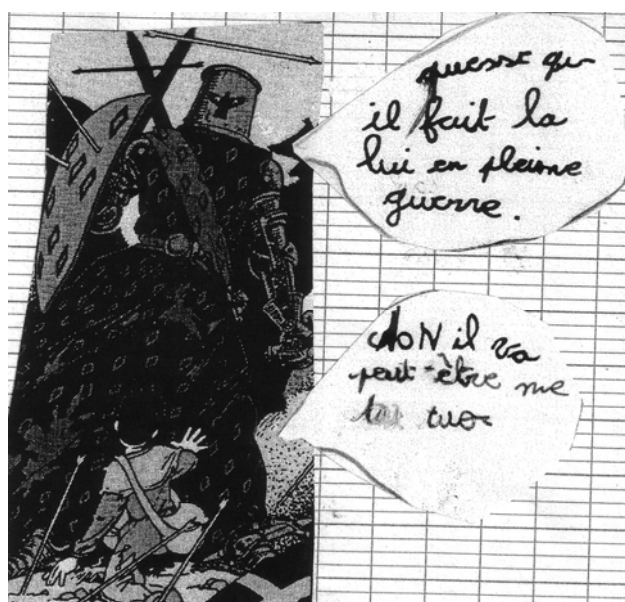 quesse qu
il fait la
lui en pleine
guerre.
NON il va
peut-être me
tuer